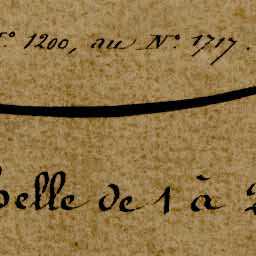 N.º 1200, au N.º 1717.
belle de 1 à 2